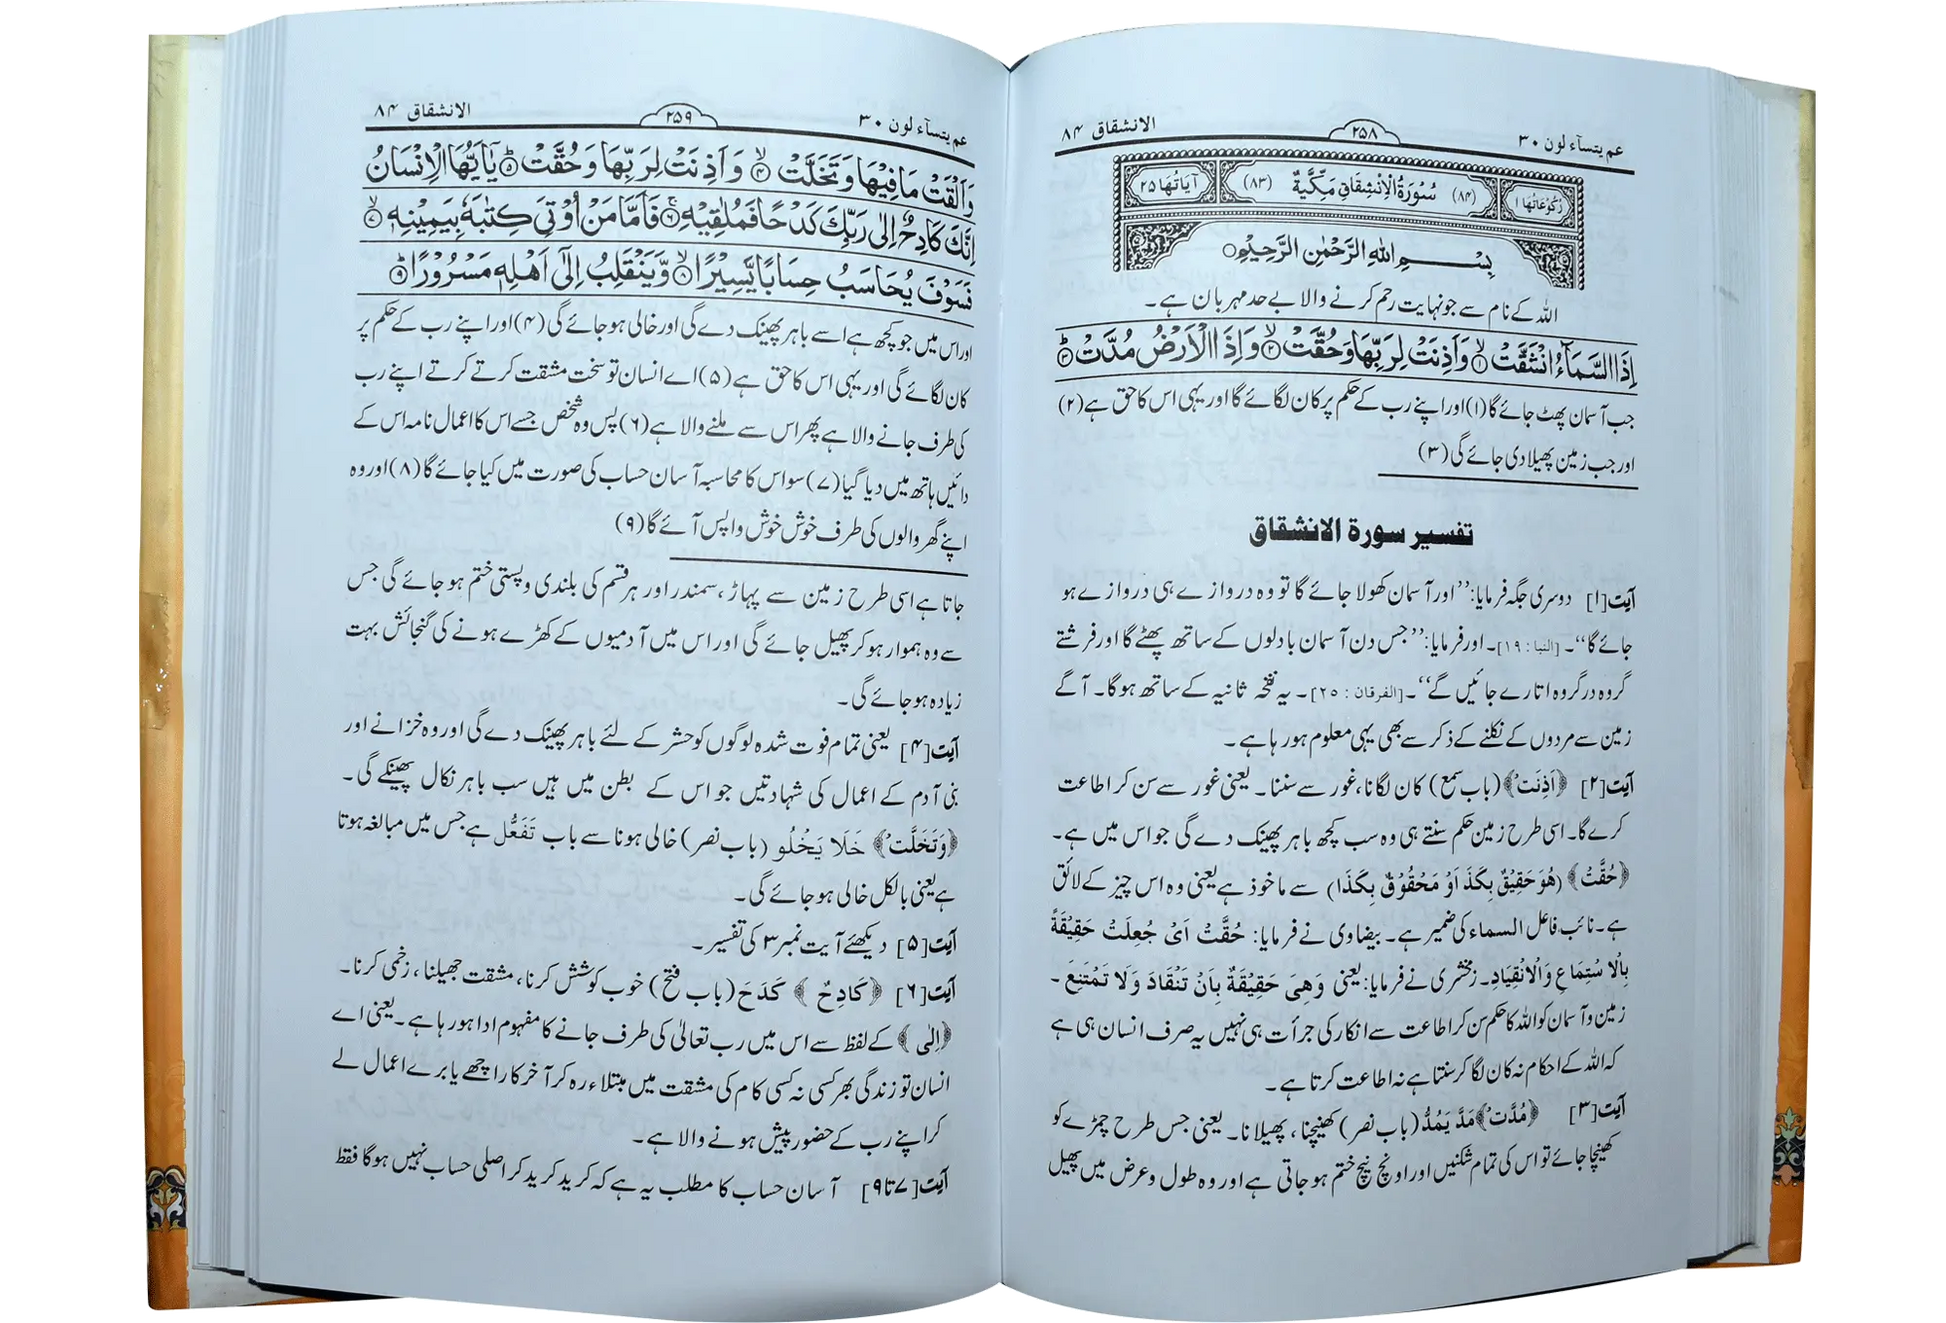 عم يتسآء لون ٣٠
٢٥٨
الانشقاق ٨٤
رُكُوْعَاتُهَا ١
(٨٤) سُوْرَةُ الْاِنْشِقَاقِ مَكِّيَّةٌ (٨٣)
آيَاتُهَا ٢٥
بِسْــــمِ اللهِ الرَّحْمٰنِ الرَّحِيْمِ○
اللہ کے نام سے جو نہایت رحم کرنے والا بے حد مہربان ہے۔
اِذَا السَّمَآءُ انْشَقَّتْ ۙ﴿۱﴾ وَاَذِنَتْ لِرَبِّهَا وَحُقَّتْ ۙ﴿۲﴾ وَاِذَا الْاَرْضُ مُدَّتْ ؕ﴿۳﴾
جب آسمان پھٹ جائے گا (۱) اور اپنے رب کے حکم پر کان لگائے گا اور یہی اس کا حق ہے (۲)
اور جب زمین پھیلا دی جائے گی (۳)
تفسیر سورة الانشقاق
آیت [۱] دوسری جگہ فرمایا: ’’اور آسمان کھولا جائے گا تو وہ دروازے ہی دروازے ہو
جائے گا‘‘۔ [النبا : ۱۹]۔ اور فرمایا: ’’جس دن آسمان بادلوں کے ساتھ پھٹے گا اور فرشتے
گروہ در گروہ اتارے جائیں گے‘‘۔ [الفرقان : ۲۵]۔ یہ نفخہ ثانیہ کے ساتھ ہوگا۔ آگے
زمین سے مردوں کے نکلنے کے ذکر سے بھی یہی معلوم ہو رہا ہے۔
آیت [۲] ﴿اَذِنَتْ﴾ (باب سمع) کان لگانا، غور سے سننا۔ یعنی غور سے سن کر اطاعت
کرے گا۔ اسی طرح زمین حکم سنتے ہی وہ سب کچھ باہر پھینک دے گی جو اس میں ہے۔
﴿حُقَّتْ﴾ (هُوَ حَقِيْقٌ بِكَذَا اَوْ مَحْقُوْقٌ بِكَذَا) سے ماخوذ ہے یعنی وہ اس چیز کے لائق
ہے۔ نائب فاعل السماء کی ضمیر ہے۔ بیضاوی نے فرمایا: حُقَّتْ اَیْ جُعِلَتْ حَقِيْقَةً
بِالْاِسْتِمَاعِ وَالْاِنْقِيَادِ۔ زمخشری نے فرمایا: یعنی وَهِیَ حَقِيْقَةٌ بِاَنْ تَنْقَادَ وَلَا تَمْتَنِعَ۔
زمین و آسمان کو اللہ کا حکم سن کر اطاعت سے انکار کی جرأت ہی نہیں یہ صرف انسان ہی ہے
کہ اللہ کے احکام نہ کان لگا کر سنتا ہے نہ اطاعت کرتا ہے۔
آیت [۳] ﴿مُدَّتْ﴾ مَدَّ يَمُدُّ (باب نصر) کھینچنا، پھیلانا۔ یعنی جس طرح چمڑے کو
کھینچا جائے تو اس کی تمام شکنیں اور اونچ نیچ ختم ہو جاتی ہے اور وہ طول و عرض میں پھیل
عم يتسآء لون ٣٠
٢٥٩
الانشقاق ٨٤
وَاَلْقَتْ مَا فِيْهَا وَتَخَلَّتْ ۙ﴿۴﴾ وَاَذِنَتْ لِرَبِّهَا وَحُقَّتْ ؕ﴿۵﴾ يٰۤاَيُّهَا الْاِنْسَانُ
اِنَّكَ كَادِحٌ اِلٰى رَبِّكَ كَدْحًا فَمُلٰقِيْهِ ۚ﴿۶﴾ فَاَمَّا مَنْ اُوْتِيَ كِتٰبَهٗ بِيَمِيْنِهٖ ۙ﴿۷﴾
فَسَوْفَ يُحَاسَبُ حِسَابًا يَّسِيْرًا ۙ﴿۸﴾ وَّيَنْقَلِبُ اِلٰۤى اَهْلِهٖ مَسْرُوْرًا ؕ﴿۹﴾
اور اس میں جو کچھ ہے اسے باہر پھینک دے گی اور خالی ہو جائے گی (۴) اور اپنے رب کے حکم پر
کان لگائے گی اور یہی اس کا حق ہے (۵) اے انسان تو سخت مشقت کرتے کرتے اپنے رب
کی طرف جانے والا ہے پھر اس سے ملنے والا ہے (۶) پس وہ شخص جسے اس کا اعمال نامہ اس کے
دائیں ہاتھ میں دیا گیا (۷) سو اس کا محاسبہ آسان حساب کی صورت میں کیا جائے گا (۸) اور وہ
اپنے گھر والوں کی طرف خوش خوش واپس آئے گا (۹)
جاتا ہے اسی طرح زمین سے پہاڑ، سمندر اور ہر قسم کی بلندی و پستی ختم ہو جائے گی جس
سے وہ ہموار ہو کر پھیل جائے گی اور اس میں آدمیوں کے کھڑے ہونے کی گنجائش بہت
زیادہ ہو جائے گی۔
آیت [۴] یعنی تمام فوت شدہ لوگوں کو حشر کے لئے باہر پھینک دے گی اور وہ خزانے اور
بنی آدم کے اعمال کی شہادتیں جو اس کے بطن میں ہیں سب باہر نکال پھینکے گی۔
﴿وَتَخَلَّتْ﴾ خَلَا يَخْلُو (باب نصر) خالی ہونا سے باب تَفَعُّل ہے جس میں مبالغہ ہوتا
ہے یعنی بالکل خالی ہو جائے گی۔
آیت [۵] دیکھئے آیت نمبر ۳ کی تفسیر۔
آیت [۶] ﴿كَادِحٌ﴾ كَدَحَ (باب فتح) خوب کوشش کرنا، مشقت جھیلنا، زخمی کرنا۔
﴿اِلٰی﴾ کے لفظ سے اس میں رب تعالیٰ کی طرف جانے کا مفہوم ادا ہو رہا ہے۔ یعنی اے
انسان تو زندگی بھر کسی نہ کسی کام کی مشقت میں مبتلاء رہ کر آخر کار اچھے یا برے اعمال لے
کر اپنے رب کے حضور پیش ہونے والا ہے۔
آیت [۷ تا ۹] آسان حساب کا مطلب یہ ہے کہ کرید کرید کر اصلی حساب نہیں ہوگا فقط